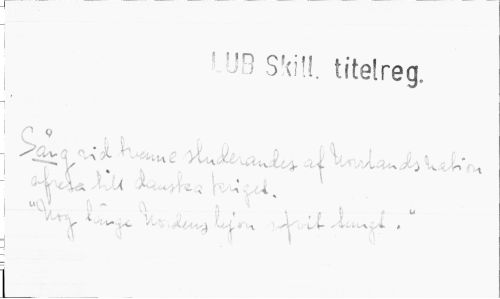 LUB Skill. titelreg.
Sång vid tvenne studerandes af Norrlands nation
afresa till danska kriget.
"Nog länge Nordens lejon sofvit tungt."